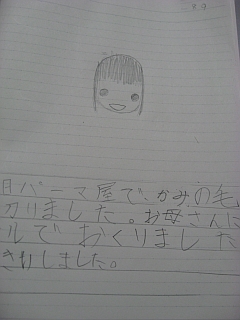 9
日パーマ屋で、かみの毛
カリました。お母さんに
ルでおくりました
きりしました。